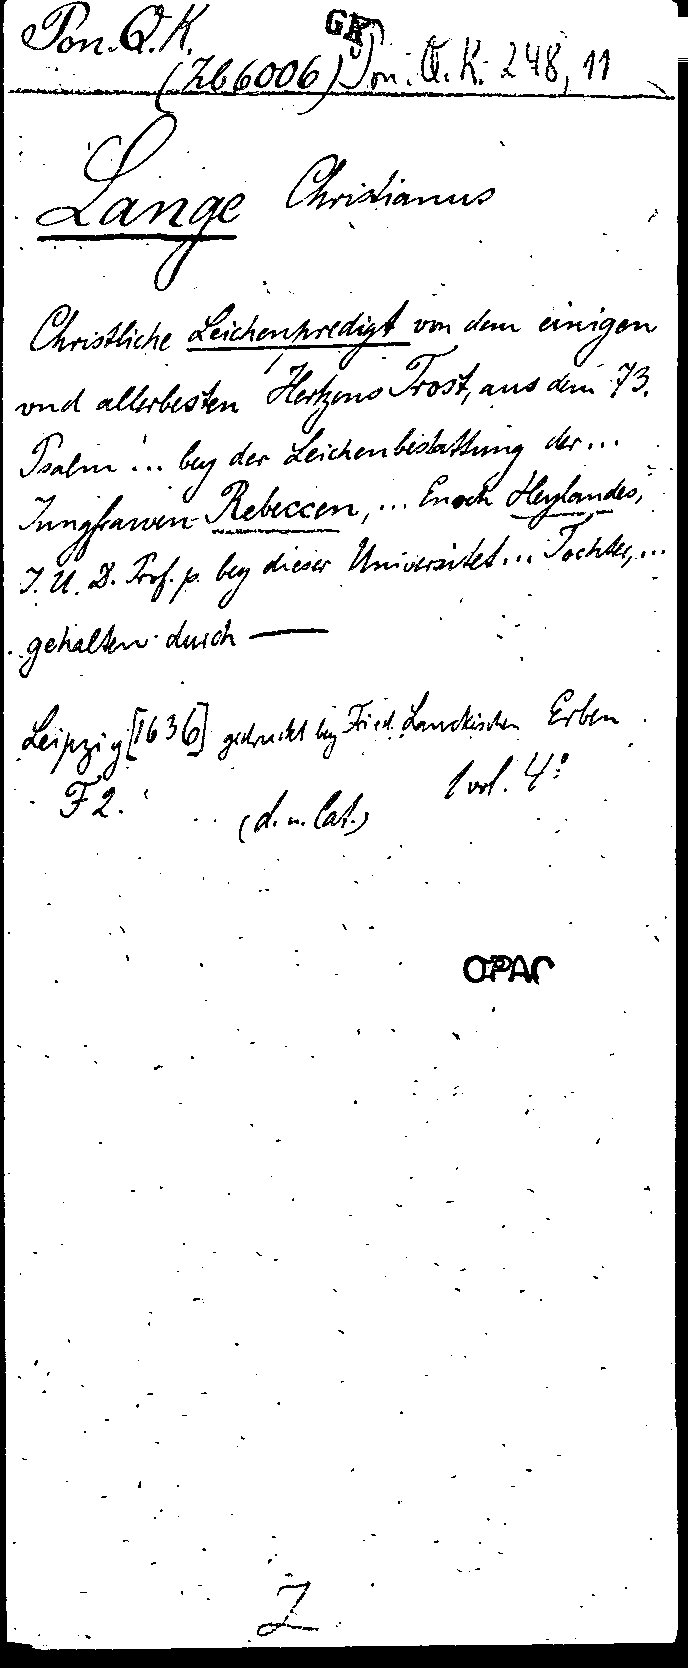 Pon. Q. K. GK
(Zb 6006) Pon. Q. K. 248, 11
Lange Christianus
Christliche Leichenpredigt von dem einigen
vnd allerbesten Hertzens Trost, aus dem 73.
Psalm ... bey der Leichenbestattung der ...
Jungfrawen Rebeccen, ... Enoch Heylandes,
J. U. D. Prof. p. bey dieser Universitet ... Tochter, ...
gehalten durch —
Leipzig [1636] gedruckt bey Fried. Lanckischen Erben
F 2. 1 vol. 4°
(d. u. Cat.)
OPAC
Z